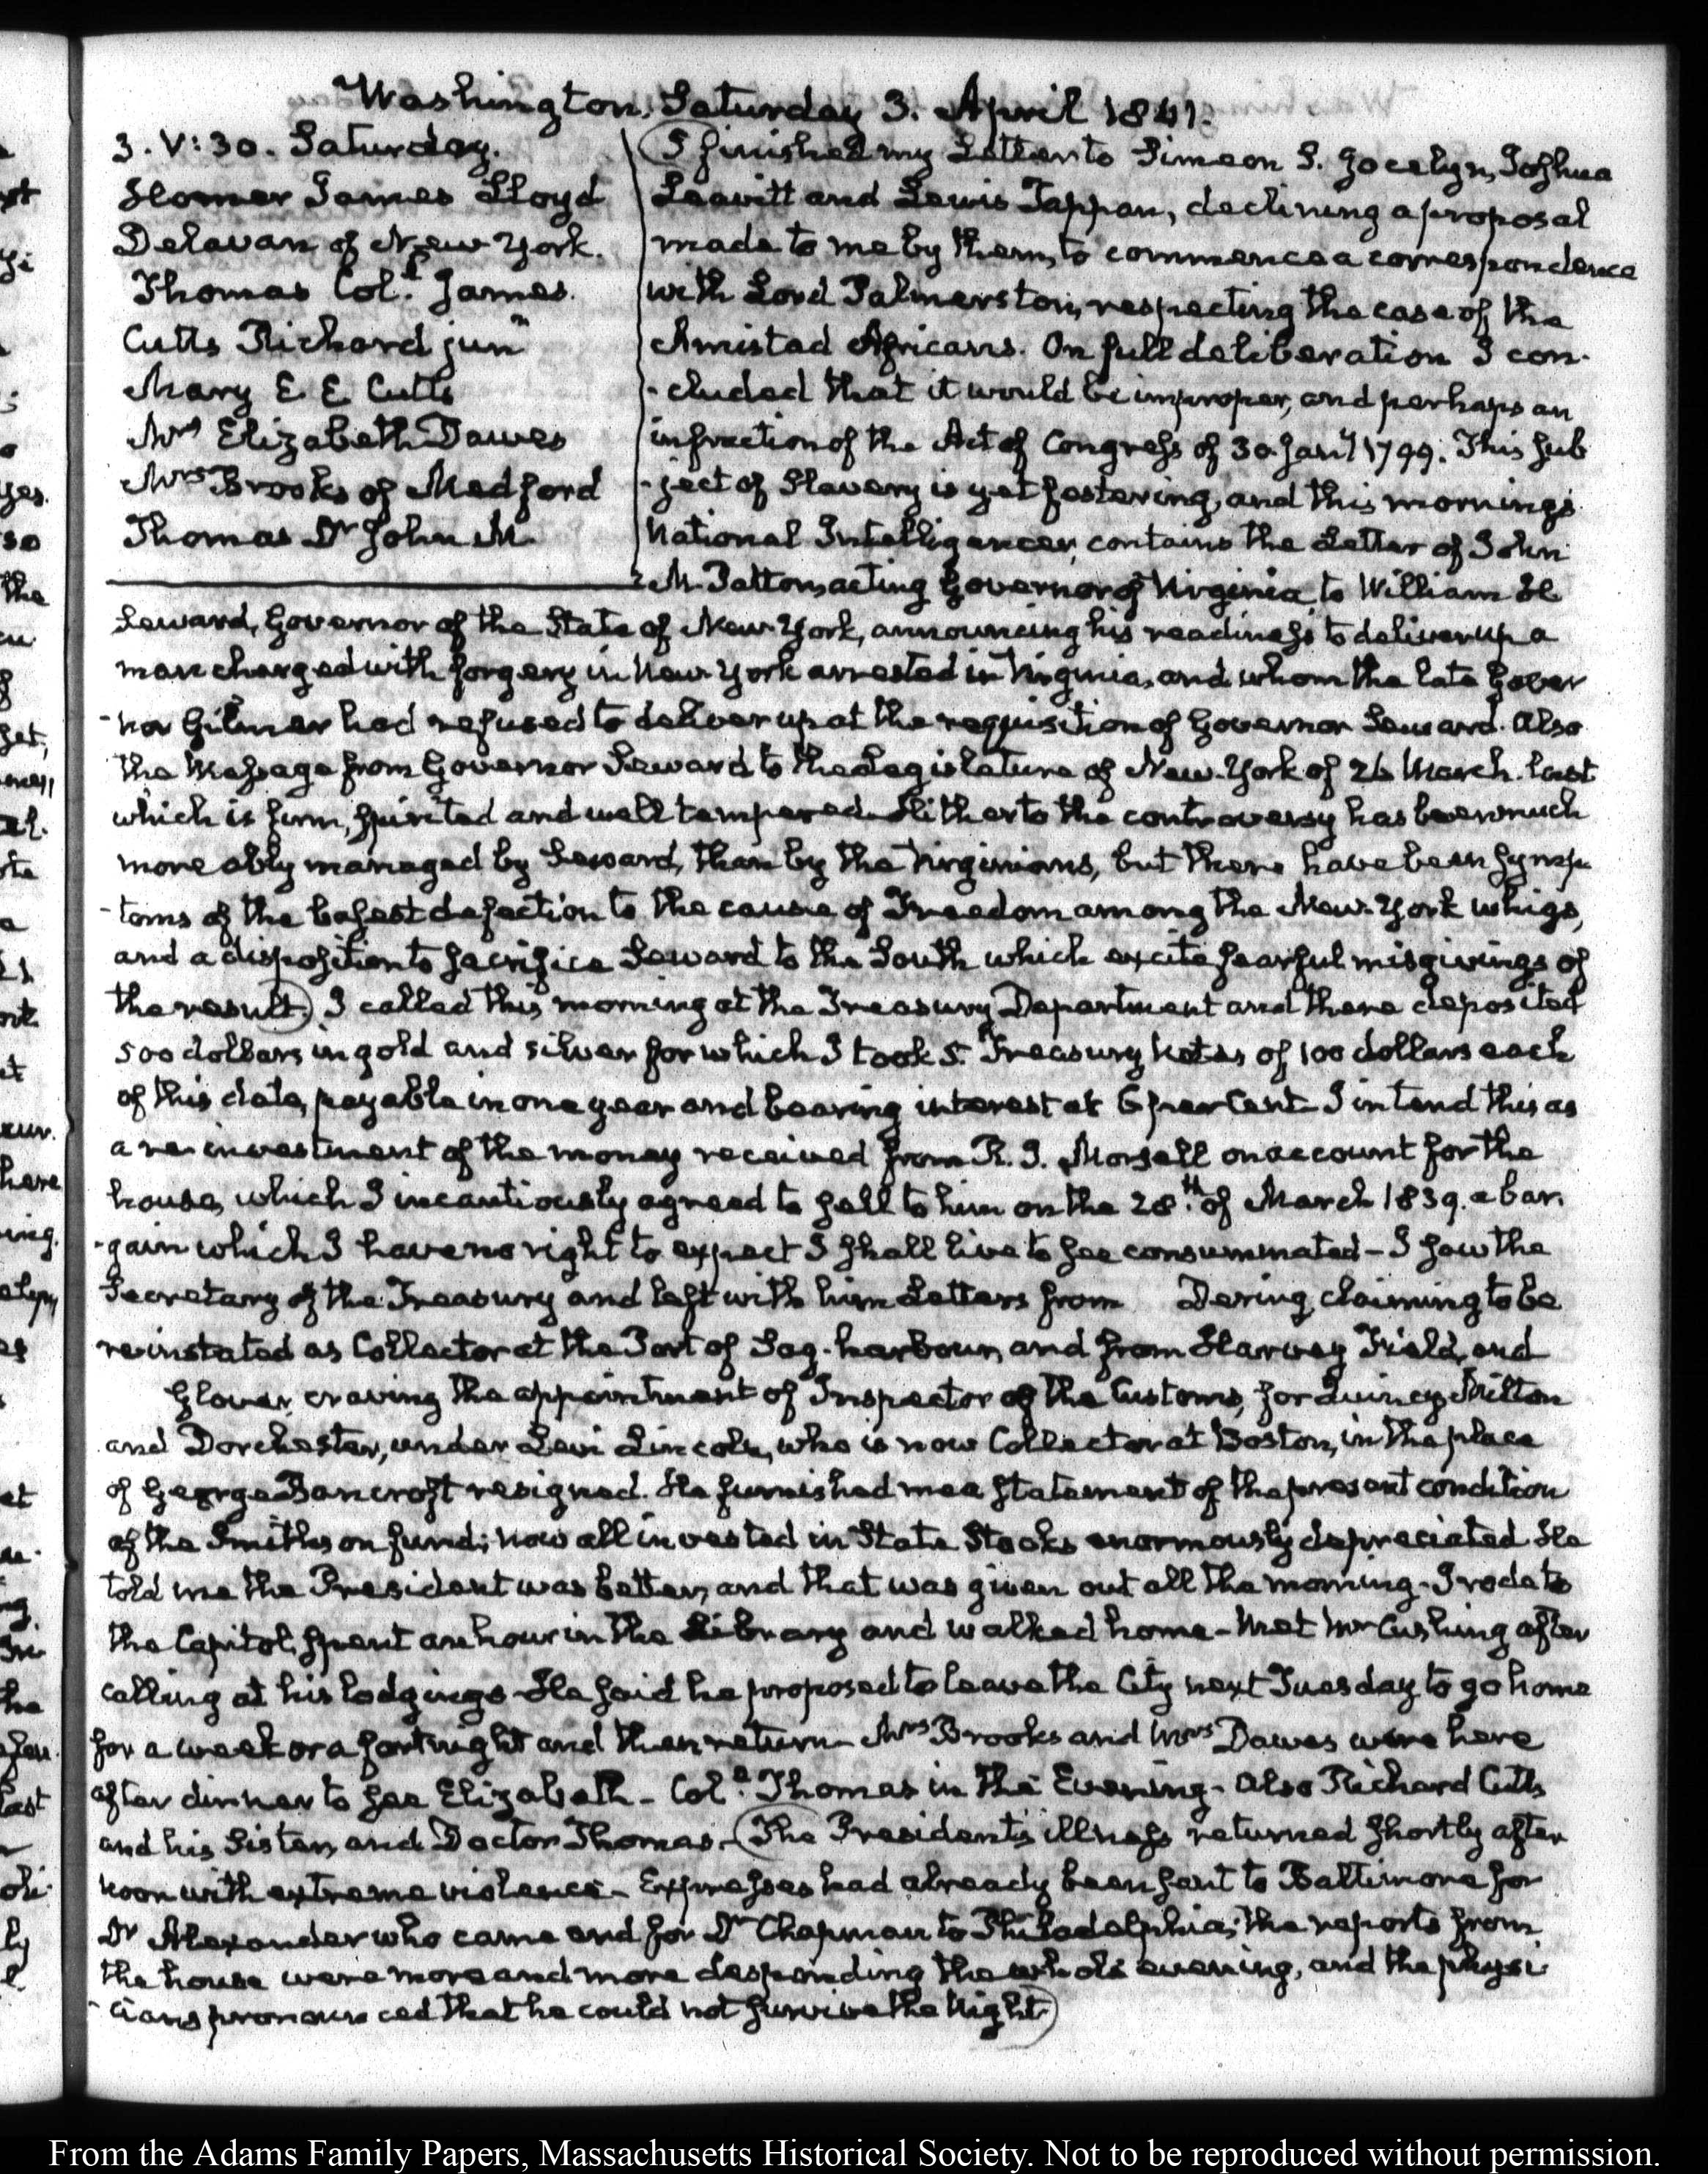 Washington, Saturday 3. April 1841.
3. V:30. Saturday.
Homer James Lloyd
Delavan of New-York.
Thomas Col. James.
Cutts Richard junr
Mary E E Cutts
Mrs Elizabeth Dawes
Mrs Brooks of Medford
Thomas Dr John M.
I finished my Letter to Simeon S. Jocelyn, Joshua
Leavitt and Lewis Tappan, declining a proposal
made to me by them, to commence a correspondence
with Lord Palmerston, respecting the case of the
Amistad Africans. On full deliberation I con-
-cluded that it would be improper, and perhaps an
infraction of the Act of Congress of 30. Jany 1799. This sub
-ject of Slavery is yet festering, and this morning's
National Intelligencer, contains the Letter of John
M. Patton, acting Governor of Virginia, to William H
Seward, Governor of the State of New-York, announcing his readiness to deliver up a
man charged with forgery in New-York arrested in Virginia, and whom the late Gover
-nor Gilmer had refused to deliver up at the requisition of Governor Seward. Also
the Message from Governor Seward to the Legislature of New-York of 26 March last
which is firm, spirited and well tempered. Hitherto the controversy has been much
more ably managed by Seward, than by the Virginians, but there have been symp
-toms of the basest defection to the cause of Freedom among the New-York whigs,
and a disposition to sacrifice Seward to the South which excite fearful misgivings of
the result. I called this morning at the Treasury Department and there deposited
500 dollars in gold and silver for which I took 5. Treasury Notes of 100 dollars each
of this date, payable in one year and bearing interest at 6 per Cent. I intend this as
a re-investment of the money received from R. J. Morsell on account for the
house, which I incautiously agreed to sell to him on the 28th of March 1839. a bar.
-gain which I have no right to expect I shall live to see consummated - I saw the
Secretary of the Treasury and left with him Letters from Dering, claiming to be
re-instated as Collector at the Port of Sag-harbour, and from Harvey Field, and
Glover, craving the appointment of Inspector of the Customs, for Quincy Milton
and Dorchester, under Levi Lincoln, who is now Collector at Boston, in the place
of George Bancroft resigned. He furnished me a statement of the present condition
of the Smithson fund; now all invested in State Stocks enormously depreciated He
told me the President was better, and that was given out all the morning - I rode to
the Capitol, spent an hour in the Library and walked home - Met Mr Cushing after
calling at his lodgings - He said he proposed to leave the City next Tuesday to go home
for a week or a fortnight and then return - Mrs Brooks and Mrs Dawes were here
after dinner to see Elizabeth - Col. Thomas in the Evening - Also Richard Cutts
and his Sister, and Doctor Thomas. (The President's illness returned shortly after
noon with extreme violence - Expresses had already been sent to Baltimore for
Dr Alexander who came and for Dr Chapman to Philadelphia; the reports from
the house were more and more desponding the whole evening, and the physi
-cians pronounced that he could not survive the Night)
From the Adams Family Papers, Massachusetts Historical Society. Not to be reproduced without permission.